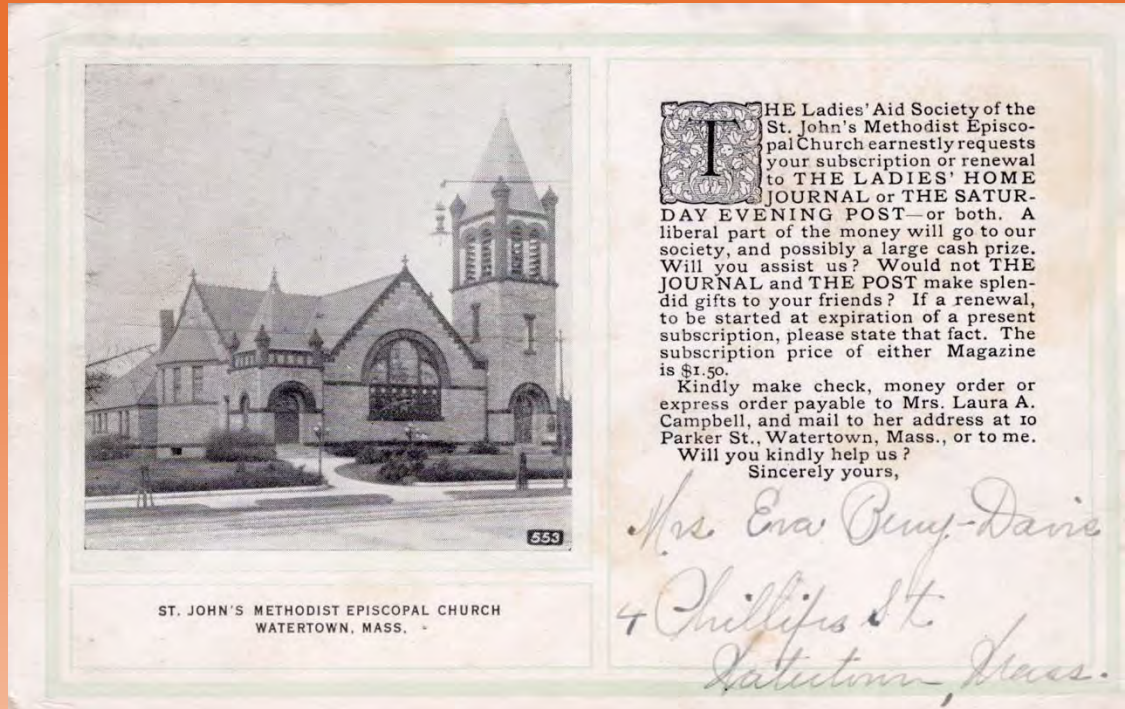 553
ST. JOHN'S METHODIST EPISCOPAL CHURCH
WATERTOWN, MASS.
THE Ladies' Aid Society of the
St. John's Methodist Episco-
pal Church earnestly requests
your subscription or renewal
to THE LADIES' HOME
JOURNAL or THE SATUR-
DAY EVENING POST—or both. A
liberal part of the money will go to our
society, and possibly a large cash prize.
Will you assist us? Would not THE
JOURNAL and THE POST make splen-
did gifts to your friends? If a renewal,
to be started at expiration of a present
subscription, please state that fact. The
subscription price of either Magazine
is $1.50.
Kindly make check, money order or
express order payable to Mrs. Laura A.
Campbell, and mail to her address at 10
Parker St., Watertown, Mass., or to me.
Will you kindly help us?
Sincerely yours,
Mrs. Eva Davis
4 Phillips St.
Watertown, Mass.